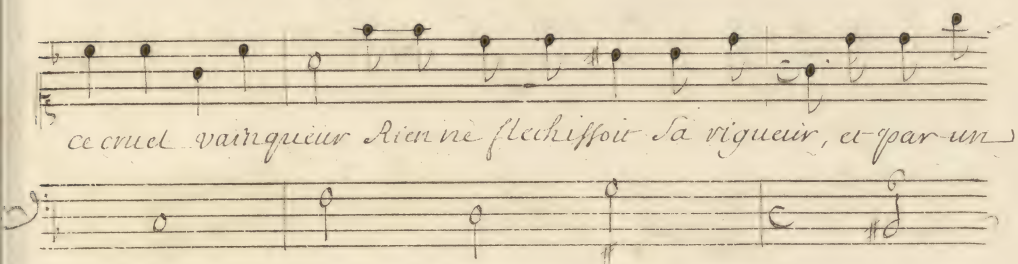 ce cruel vainqueur Rien ne flechissoit sa rigueur, et par un